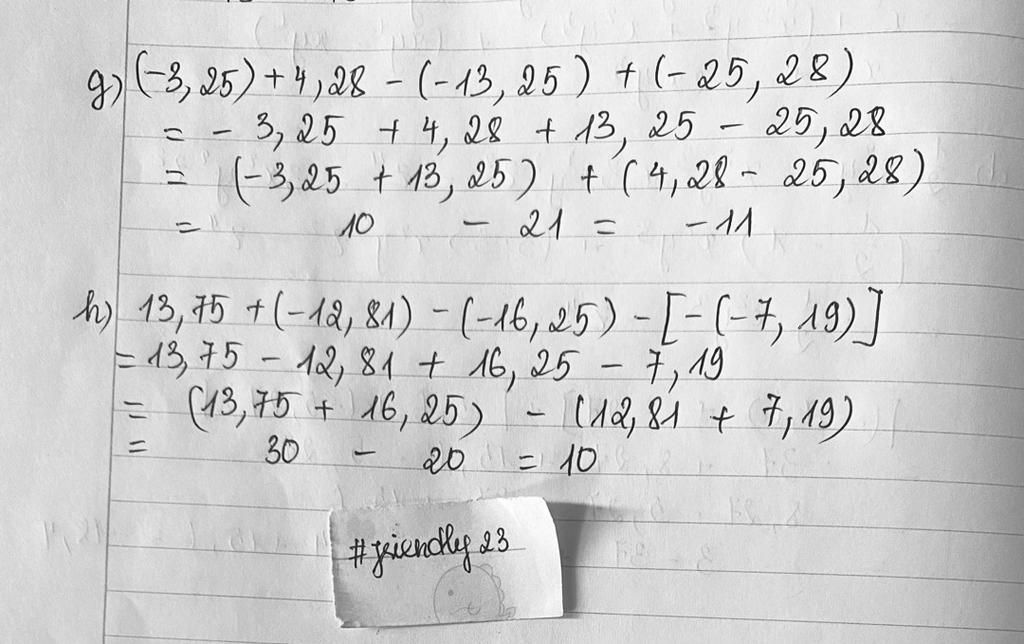 g) (-3,25) + 4,28 - (-13,25) + (-25,28)
= - 3,25 + 4,28 + 13,25 - 25,28
= (-3,25 + 13,25) + (4,28 - 25,28)
= 10 - 21 = -11
h) 13,75 + (-12,81) - (-16,25) - [-(-7,19)]
= 13,75 - 12,81 + 16,25 - 7,19
= (13,75 + 16,25) - (12,81 + 7,19)
= 30 - 20 = 10
#friendly23